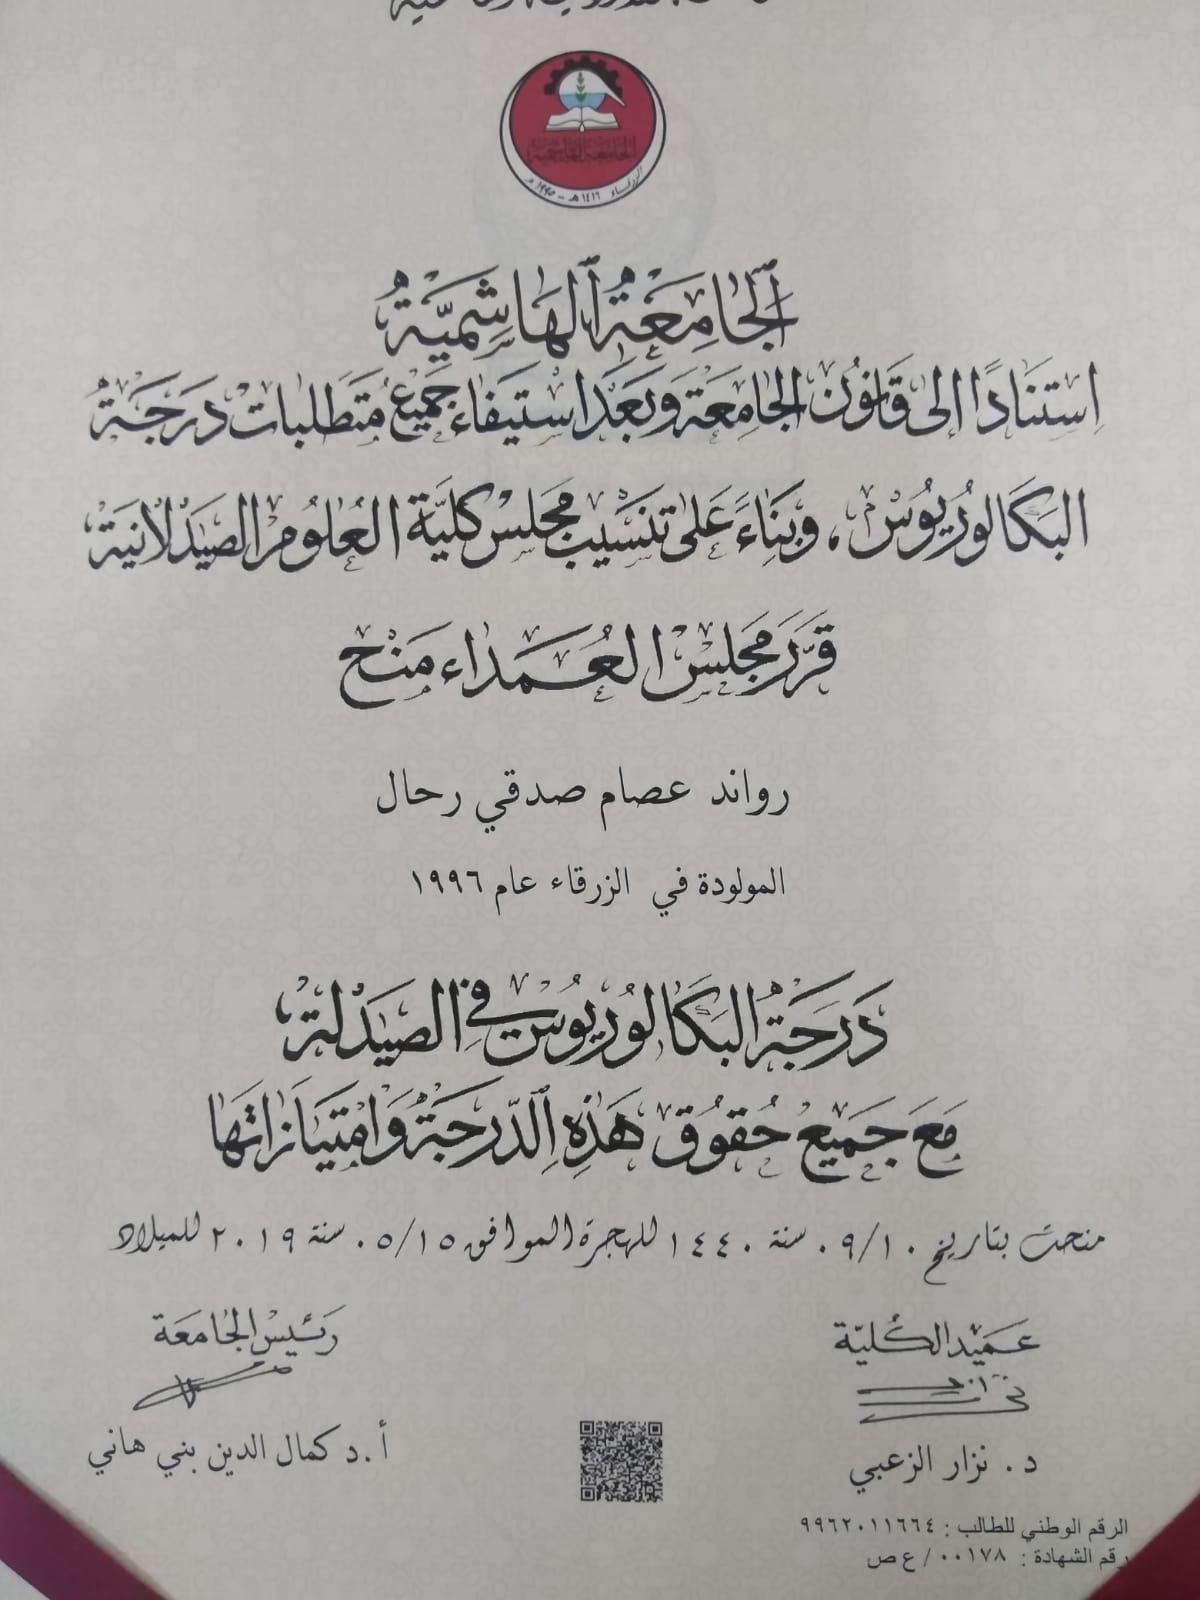 الجامعة الهاشمية
الزرقاء ١٤١٦هـ - ١٩٩٥م
الجَامِعَةُ الهَاشِمِيَّةُ
اِستِنَادًا إلى قَانُون الجَامِعَة وَبَعْدَ اسْتِيفَاء جَمِيْعِ مُتَطَلبات دَرَجَةُ
البَكَالورْيُوْسْ، وَبِنَاءً عَلى تنْسَيْب مَجْلس كليَّة العُلوُم الصَيْدلانيَة
قرَّرَ مَجْلسْ العُمَداء مَنْح
رواند عصام صدقي رحال
المولودة في الزرقاء عام ١٩٩٦
دَرَجَةُ البَكَالوُرْيُوْسْ في الصَيْدَلة
مَعَ جَمَيْع حُقوُق هَذِهِ الدّرجَةُ وَامْتِيَازَاتهَا
منحت بتاريخ ٠٩/١٠ سنة ١٤٤٠ للهجرة الموافق ٠٥/١٥ سنة ٢٠١٩ للميلاد
عَميْد الكُليّة رَئيسْ الجَامعَة
د. نزار الزعبي أ.د كمال الدين بني هاني
الرقم الوطني للطالب : ٩٩٦٢٠١١٦٦٤
رقم الشهادة : ٠٠١٧٨ / ع ص